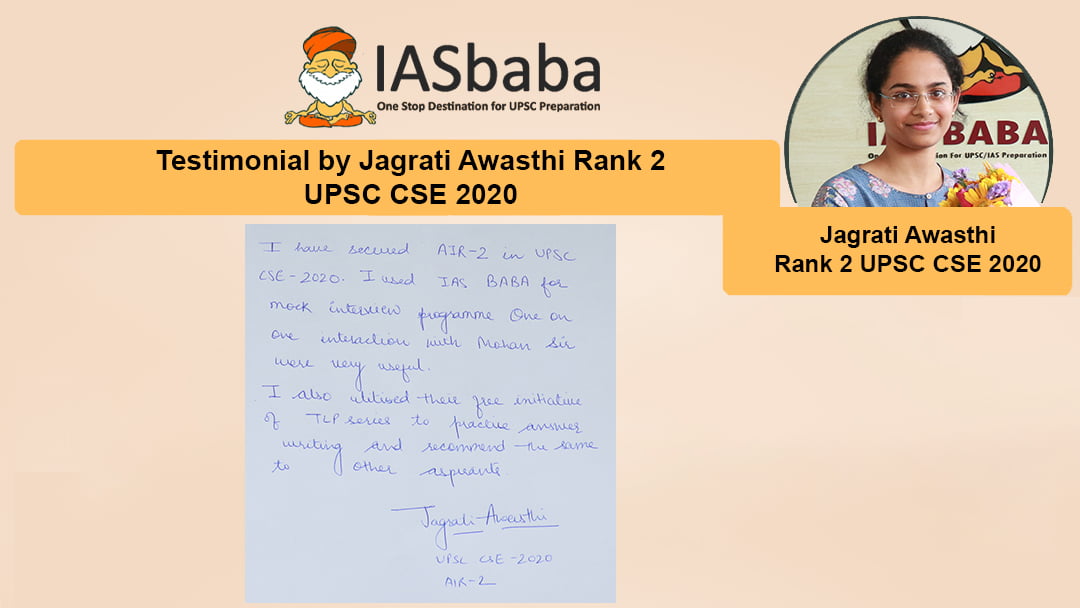 IASbaba
One Stop Destination for UPSC Preparation
Testimonial by Jagrati Awasthi Rank 2
UPSC CSE 2020
BABA
For UPSC/IAS Preparation
Jagrati Awasthi
Rank 2 UPSC CSE 2020
I have secured AIR-2 in UPSC
CSE-2020. I used IAS BABA for
mock interview programme One on
one interaction with Mohan Sir
were very useful.
I also utilised their free initiative
of TLP series to practice answer
writing and recommend the same
to other aspirants.
Jagrati Awasthi
UPSC CSE-2020
AIR-2